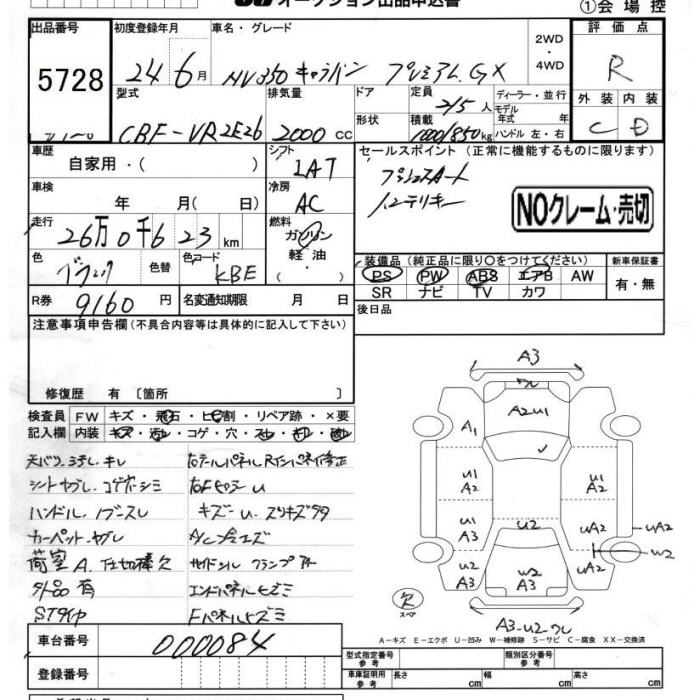 オークション出品申込書
①会場控
出品番号
5728
初度登録年月
24年6月
車名・グレード
NV350キャラバン プレミアムGX
2WD
・
4WD
評価点
R
外装 内装
C D
型式
CBF-VR2E26
排気量
2000 CC
ドア
形状
定員
2/5人
積載
1000/850kg
ディーラー・並行
モデル
年式 年
ハンドル 左・右
車歴
自家用・( )
シフト
LAT
セールスポイント (正常に機能するものに限ります)
プッシュスタート
インテリキー
NOクレーム・売切
車検
年 月( 日)
冷房
AC
走行
26万0千623km
燃料
ガソリン
軽油・
( )
装備品 (純正品に限り〇をつけてください)
PS PW ABS エアB AW
SR ナビ TV カワ
新車保証書
有・無
色
ブラック
色替
色コード
KBE
R券
9160円
名変通知期限 月 日
後日品
注意事項申告欄(不具合内容等は具体的に記入して下さい)
修復歴 有 〔箇所 〕
検査員
記入欄
FW キズ・飛石・ヒビ割・リペア跡・×要
内装 キズ・汚れ・コゲ・穴・スレ・キレ・破れ
シートヤブレ・コゲ穴・シミ
ハンドル・
カーペット・ヤブレ
荷室 A.仕切棒欠
外品有
STタイヤ
キズ
エンドパネルヒズミ
Fパネルヒズミ
A3
A2U1
A1
U1
A2
U1
A3
U2
A3
U2
W2
A3
A2
U1
A2
UA2
U2
A3
UA2
W2
欠
スペア
A3-U2-ワレ
A-キズ E-エクボ U-凹み W-補修跡 S-サビ C-腐食 XX-交換済
車台番号
000084
登録番号
型式指定番号
参考
類別区分番号
参考
車庫証明用
参考
長さ cm
幅 cm
高さ cm